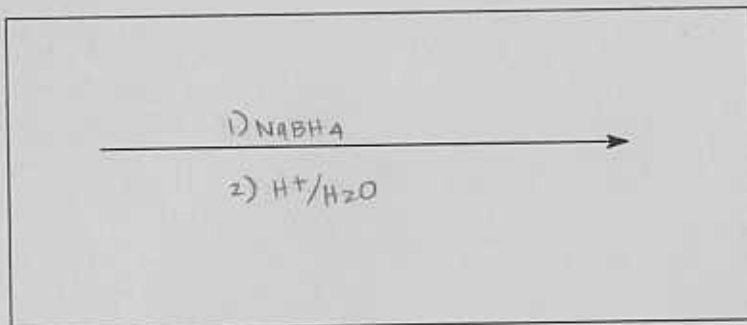 1) NaBH4
2) H+/H2O